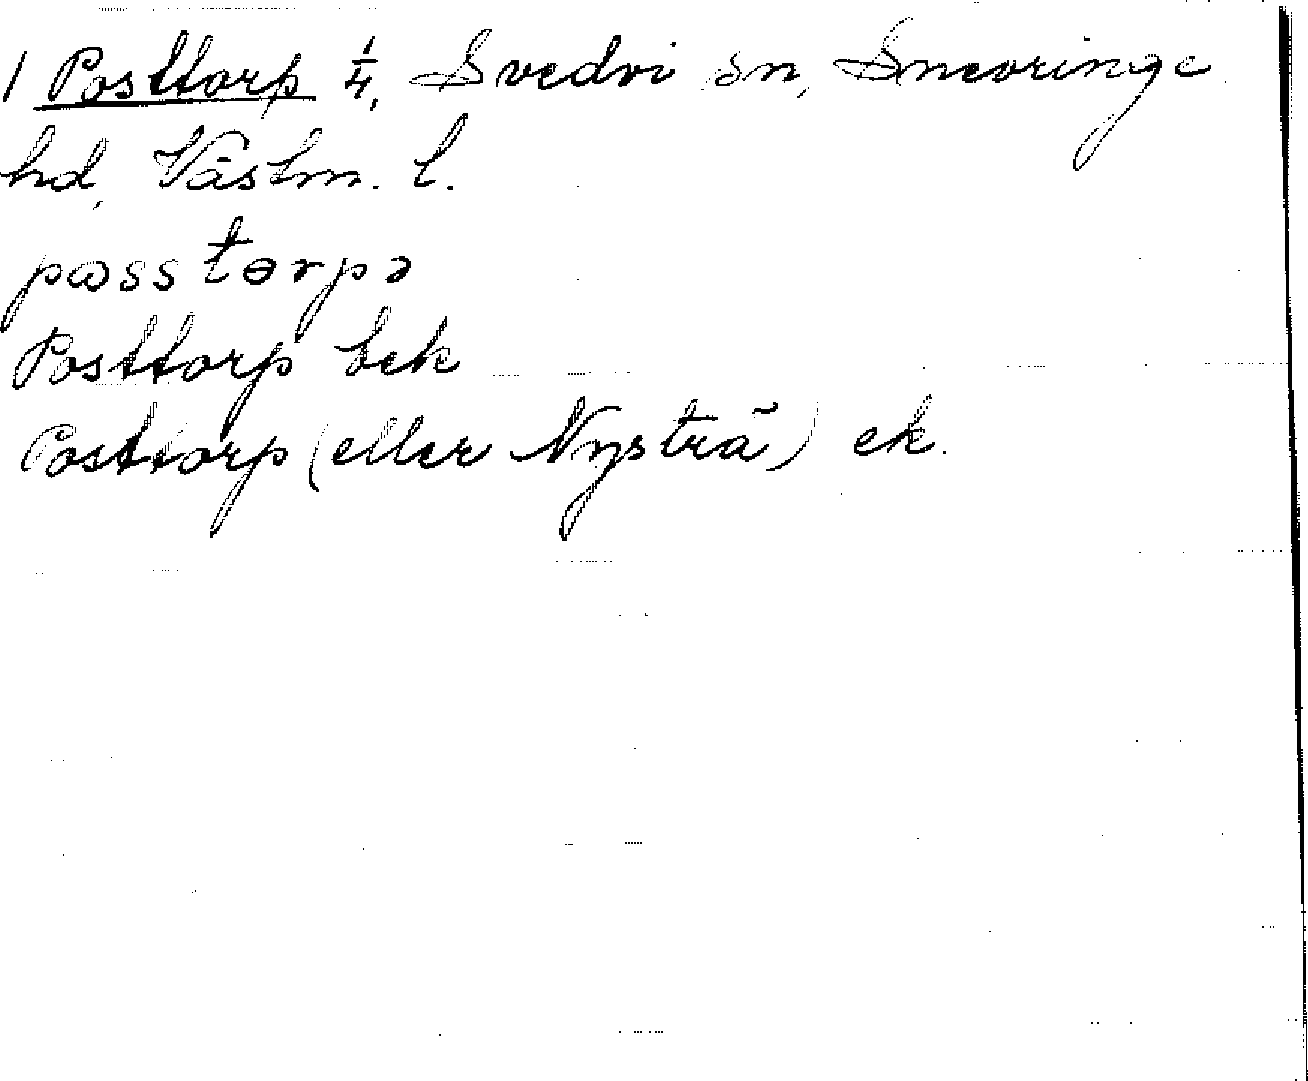 1 Posttorp 1/4, Svedvi sn, Snevringe
hd, Västm. l.
pɷsstɵrpɘ
Posttorp bek
Posttorp (eller Nysträ) ek.